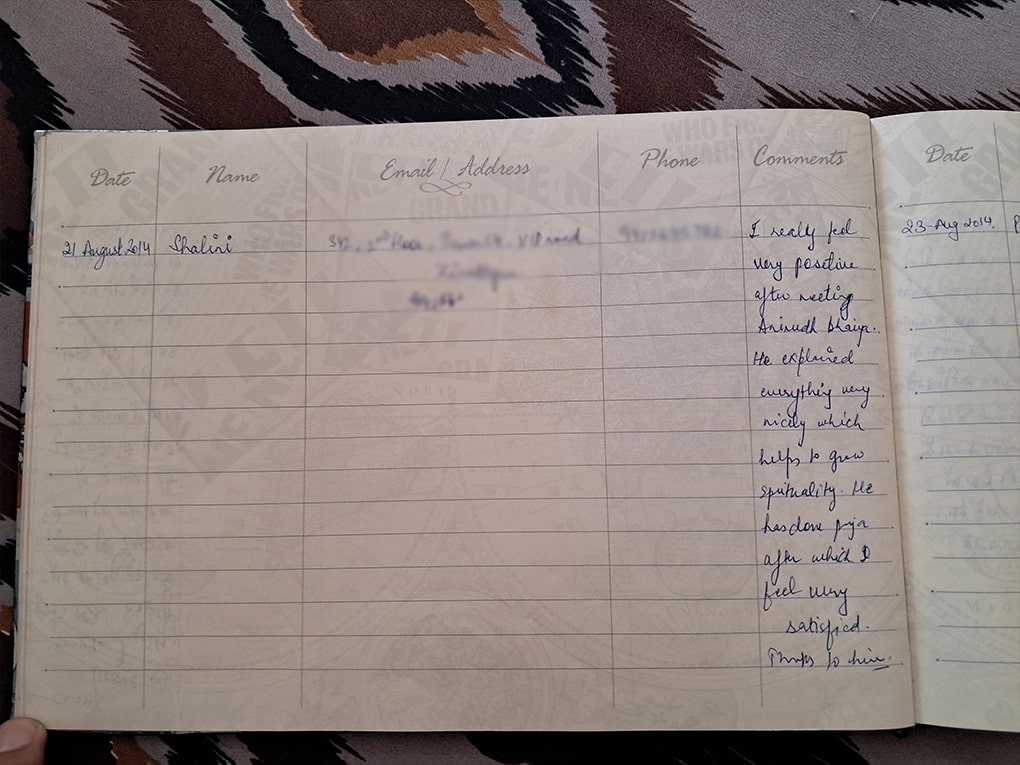 Date Name Email / Address Phone Comments Date
21 August 2014 Shalini I really feel 23-Aug 2014.
very positive
after meeting
Anirudh bhaiya.
He explained
everything very
nicely which
helps to grow
spirtuality. He
has done puja
after which I
feel very
satisfied.
Thanks to him.